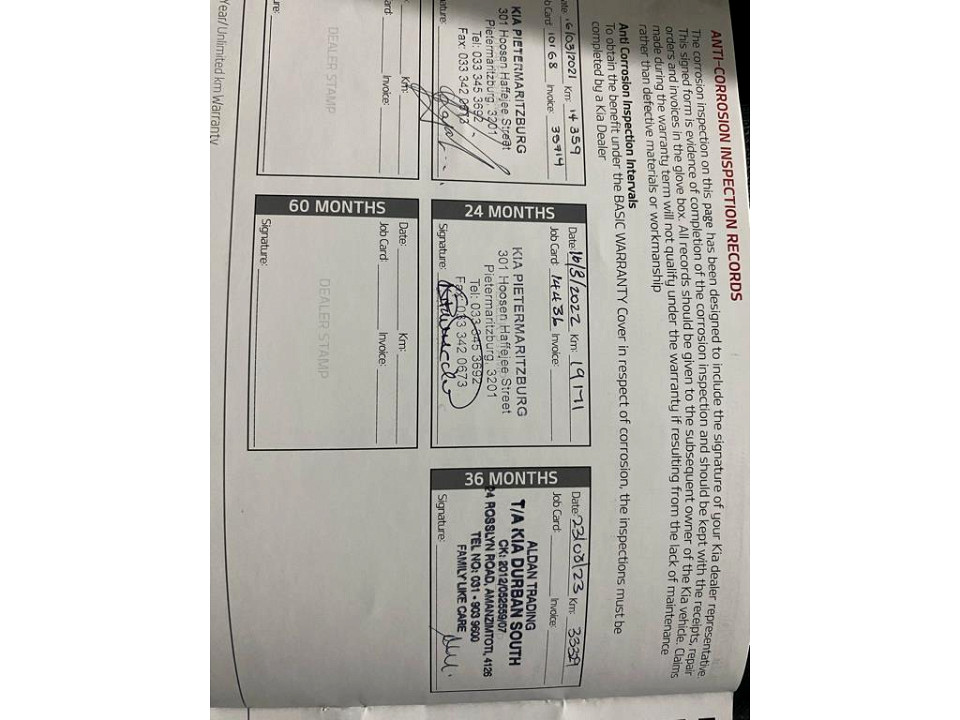 ANTI-CORROSION INSPECTION RECORDS
The corrosion inspection on this page has been designed to include the signature of your Kia dealer representative.
This signed form is evidence of completion of the corrosion inspection and should be kept with the receipts, repair
orders and invoices in the glove box. All records should be given to the subsequent owner of the Kia vehicle. Claims
made during the warranty term will not qualify under the warranty if resulting from the lack of maintenance
rather than defective materials or workmanship
Anti Corrosion Inspection Intervals
To obtain the benefit under the BASIC WARRANTY Cover in respect of corrosion, the inspections must be
completed by a Kia Dealer
16/03/2021 Km: 14 359
Card: 10168 Invoice: 35914
KIA PIETERMARITZBURG
301 Hoosen Haffejee Street
Pietermaritzburg, 3201
Tel: 033 345 3692
Fax: 033 342 0673
24 MONTHS
Date: 16/3/2022 Km: 19171
Job Card: 14436 Invoice:
KIA PIETERMARITZBURG
301 Hoosen Haffejee Street
Pietermaritzburg, 3201
Tel: 033 345 3692
Fax: 033 342 0673
Signature:
36 MONTHS
Date: 23/08/23 Km: 33359
Job Card: Invoice:
ALDAN TRADING
T/A KIA DURBAN SOUTH
CK: 2012/052559/07
24 ROSSLYN ROAD, AMANZIMTOTI, 4126
TEL NO: 031 - 903 9600
FAMILY LIKE CARE
Signature:
Km:
Invoice:
DEALER STAMP
60 MONTHS
Date: Km:
Job Card: Invoice:
DEALER STAMP
Signature:
Year/Unlimited km Warranty